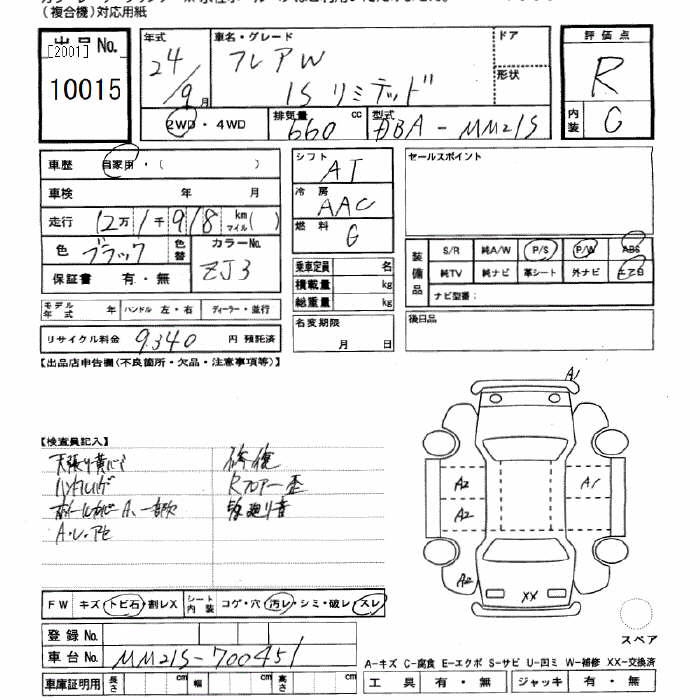 （複合機）対応用紙
出品 No.
[2001]
10015
年式
24/9月
車名・グレード
フレアW
IS リミテッド
ドア
形状
2WD・4WD
排気量
660 cc
型式
DBA-MM21S
評価点
R
内装
C
車歴 自家用・（ ）
車検 年 月
走行 12万1千918 km マイル（ ）
色 ブラック
色替
カラーNo.
ZJ3
保証書 有・無
モデル年式 年 ハンドル 左・右 ディーラー・並行
リサイクル料金 9340 円 預託済
シフト
AT
冷房
AAC
燃料
G
乗車定員 名
積載量 kg
総重量 kg
名変期限
月 日
セールスポイント
装備品
S/R 純A/W P/S P/W ABS
純TV 純ナビ 革シート 外ナビ エアB
ナビ型番：
後日品
【出品店申告欄（不良箇所・欠品・注意事項等）】
【検査員記入】
ハンドルスレ
A・U・アセ
修復
Rフロアー歪
A1
A2
A1
A2
A2
XX
スペア
FW キズ・トビ石・割レX シート内装 コゲ・穴・汚レ・シミ・破レ・スレ
登録 No.
車台 No. MM21S-700451
車庫証明用 長さ cm 幅 cm 高さ cm
A-キズ C-腐食 E-エクボ S-サビ U-凹ミ W-補修 XX-交換済
工具 有・無 ジャッキ 有・無